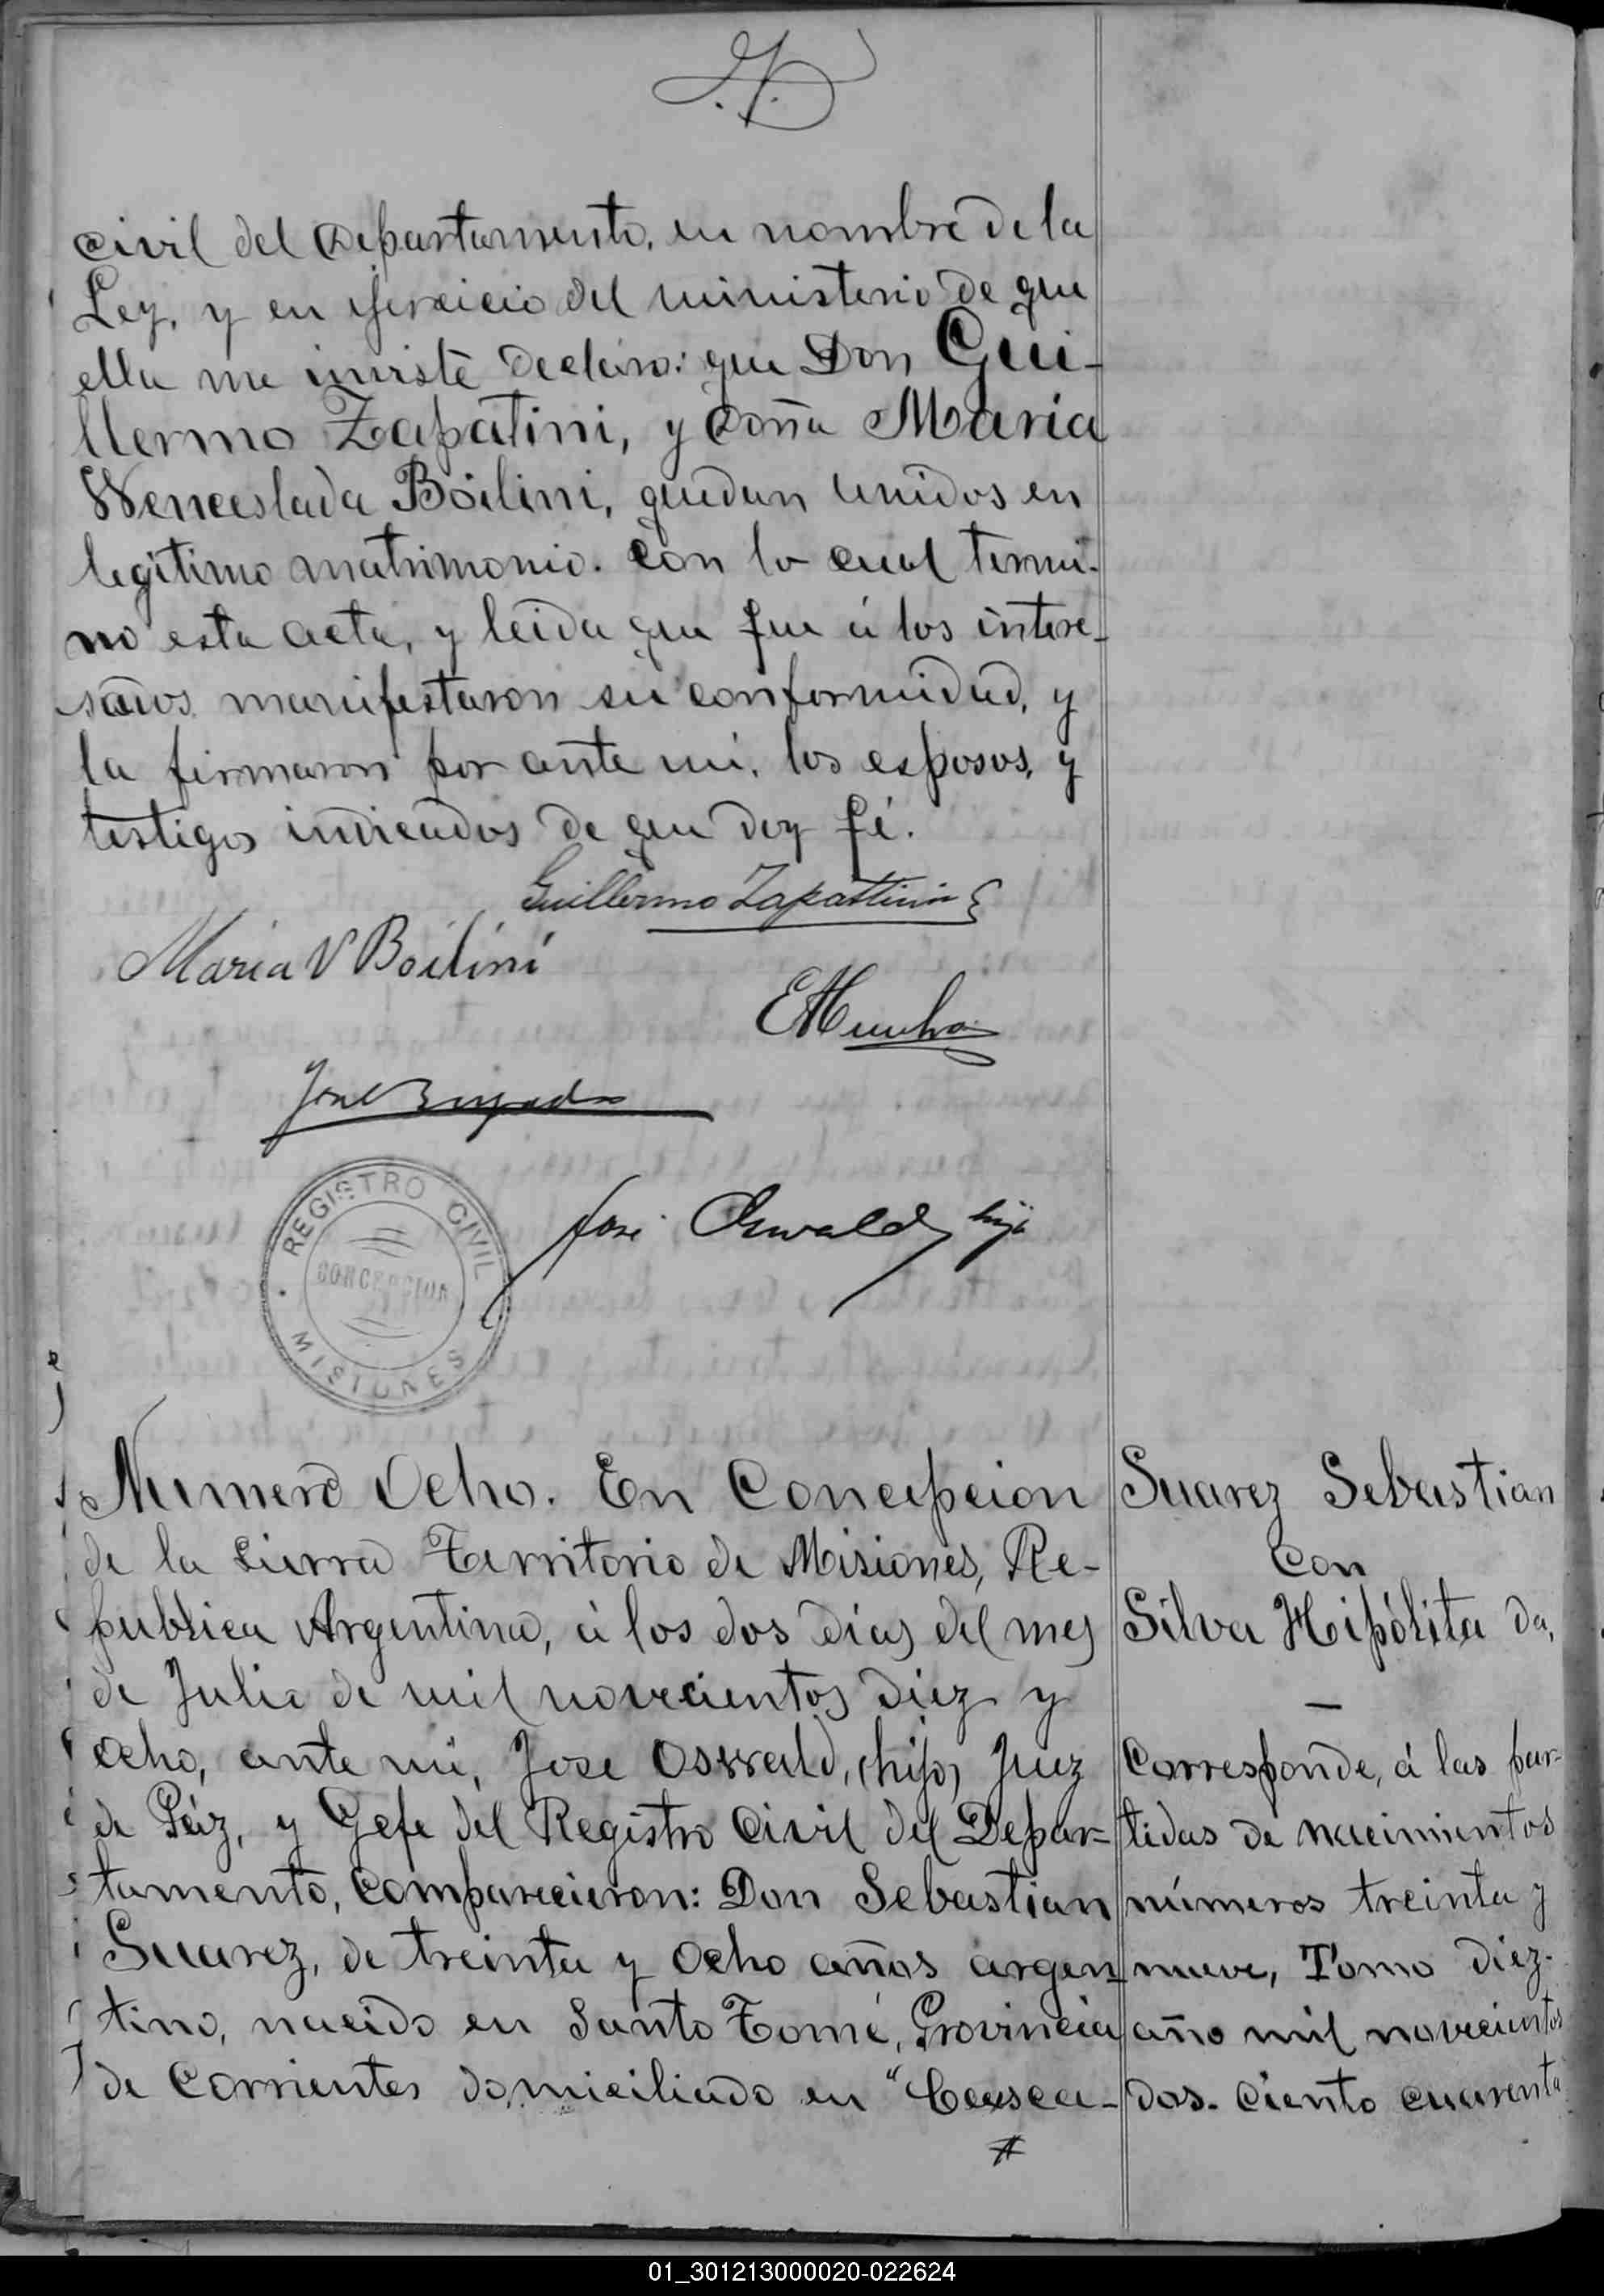 civil del Departamento, en nombre de la
Ley, y en ejercicio del ministerio de que
ella me inviste declaro: que Don Gui-
llermo Zapatini, y Doña Maria
Wenceslada Boilini, quedan unidos en
legitimo matrimonio. Con lo cual termi-
no esta acta, y leida que fue á los intere-
sados manifestaron su conformidad, y
la firmaron por ante mi, los esposos, y
testigos indicados de que doy fé.
Guillermo Zapattini
Maria V Boilini
José
José Oswald hijo
REGISTRO CIVIL
CONCEPCION
MISIONES
Numero Ocho. En Concepcion
de la Sierra Territorio de Misiones, Re-
publica Argentina, á los dos dias del mes
de Julio de mil novecientos diez y
ocho, ante mi, Jose Osswald, (hijo) Juez
de Páz, y Gefe del Registro Civil del Depar-
tamento, comparecieron: Don Sebastian
Suarez, de treinta y ocho años argen-
tino, nacido en Santo Tomé, Provincia
de Corrientes domiciliado en "Casca-
Suarez Sebastian
con
Silva Hipólita da,
—
Corresponde, á las par-
tidas de nacimientos
números treinta y
nueve, Tomo diez.
año mil novecientos
dos. Ciento cuarenta
01_301213000020-022624